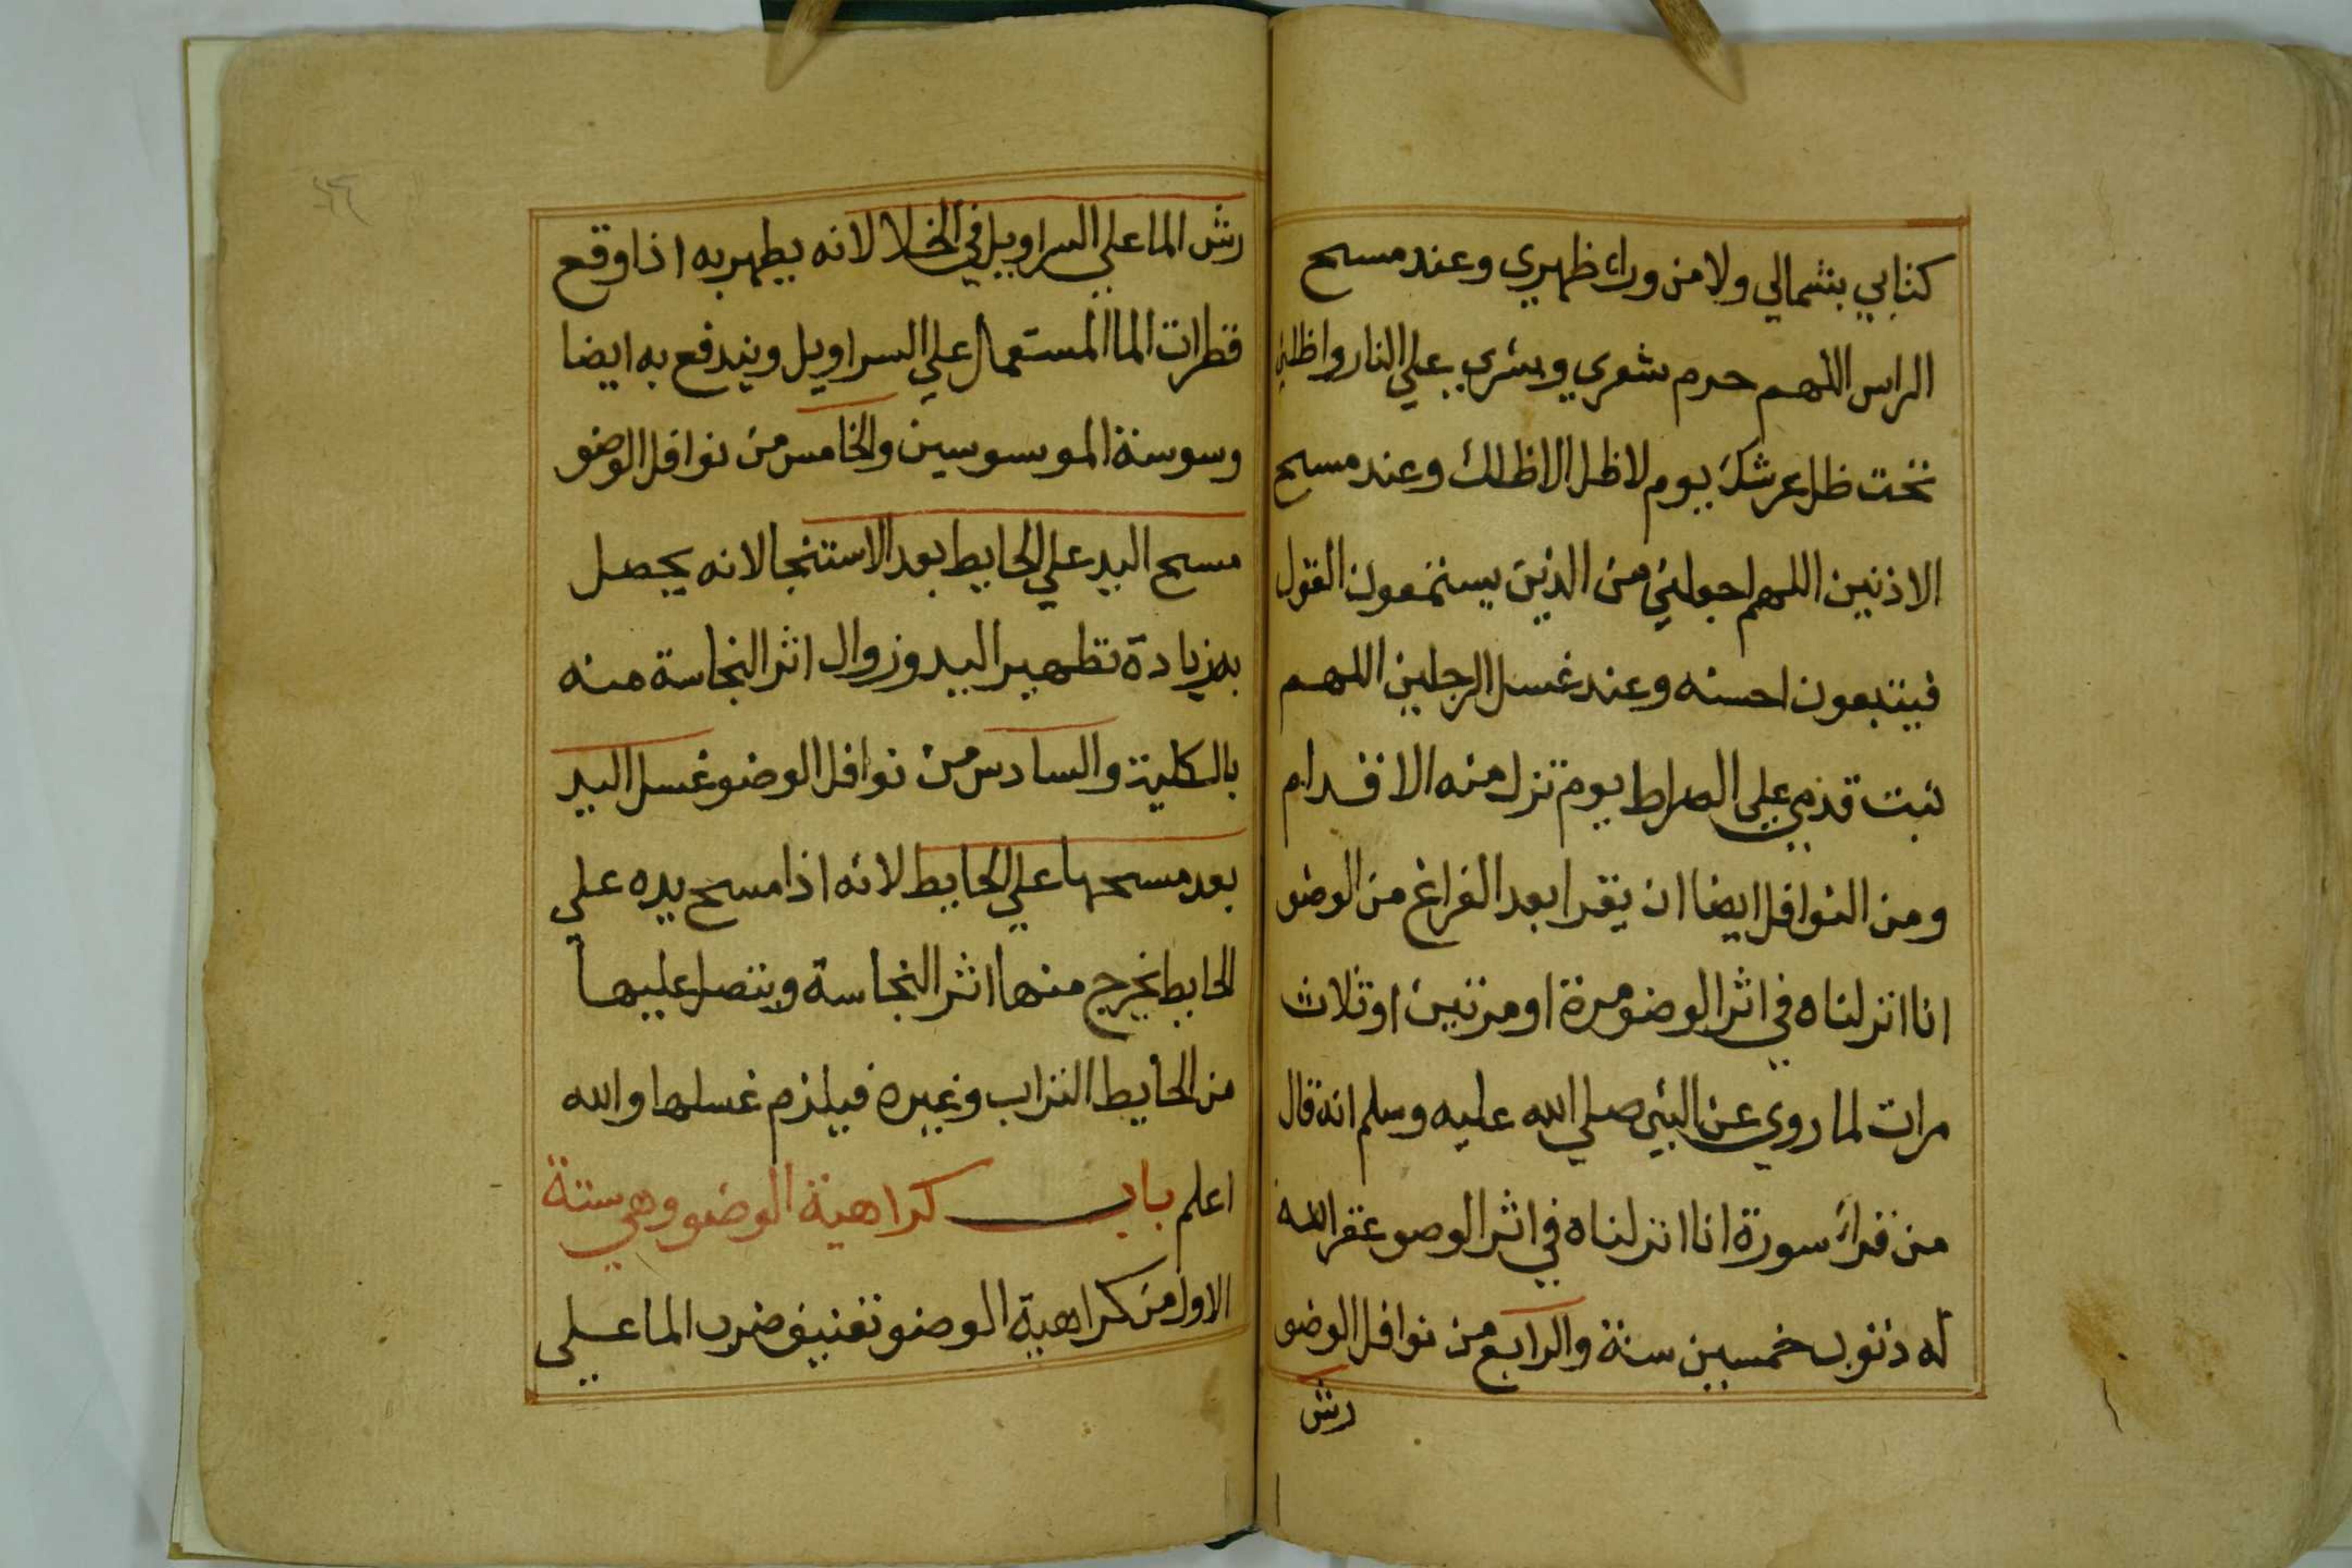 كتابي بشمالي ولا من وراء ظهري وعند مسح
الراس اللهم حرم شعري وبشري علي النار واظلني
تحت ظل عرشك يوم لا ظل الا ظلك وعند مسح
الاذنين اللهم اجعلني من الذين يستمعون القول
فيتبعون احسنه وعند غسل الرجلين اللهم
ثبت قدمي علي الصراط يوم تزل منه الاقدام
ومن النوافل ايضا ان يقرا بعد الفراغ من الوضو
انا انزلناه في اثر الوضو مرة او مرتين او ثلاث
مرات لما روي عن النبي صلي الله عليه وسلم انه قال
من قراء سورة انا انزلناه في اثر الوضو غفر الله
له ذنوب خمسين سنة والرابع من نوافل الوضو
رش
رش الما علي السراويل في الخلا لانه يطهر به اذا وقع
قطرات الما المستعمال علي السراويل ويندفع به ايضا
وسوسة الموسوسين والخامس من نوافل الوضو
مسح اليد علي الحايط بعد الاستنجا لانه يحصل
به زيادة تطهير اليد وزوال اثر النجاسة منه
بالكلية والسادس من نوافل الوضو غسل اليد
بعد مسحها علي الحايط لانه اذا مسح يده علي
الحايط يخرج منها اثر النجاسة ويتصل عليها
من الحايط التراب وغيره فيلزم غسلها والله
اعلم باب كراهية الوضو وهي ستة
الاول من كراهية الوضو تعنيف ضرب الما علي